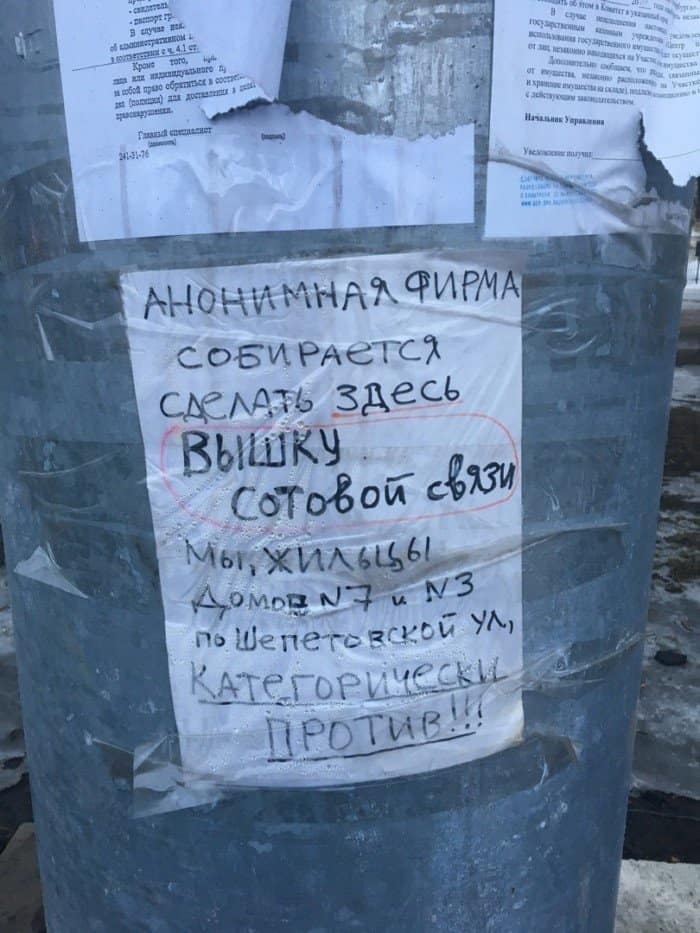 - свидетель
- паспорт гр
В случае неяв
об административном
в соответствии с ч. 4.1 ст.
Кроме того, пр
лица или индивидуального п
за собой право обратиться в соотве
дел (полиции) для доставления в
правонарушении.
Главный специалист
(должность)
(подпись)
241-31-76
общить об этом в Комитет в указанный
В случае неисполнения
государственным казенным учрежде
использования государственного имущества
от лиц, незаконно находящихся на Участке
Дополнительно сообщаем, что
от имущества, незаконно расположенно на Участке
и хранение имущества на складе), подлеж
с действующим законодательством.
Начальник Управления
Уведомление получил:
АНОНИМНАЯ ФИРМА
СОБИРАЕТСЯ
СДЕЛАТЬ ЗДЕСЬ
ВЫШКУ
СОТОВОЙ СВЯЗИ
МЫ, ЖИЛЬЦЫ
ДОМОВ N7 и N3
по Шепетовской ул,
КАТЕГОРИЧЕСКИ
ПРОТИВ!!!